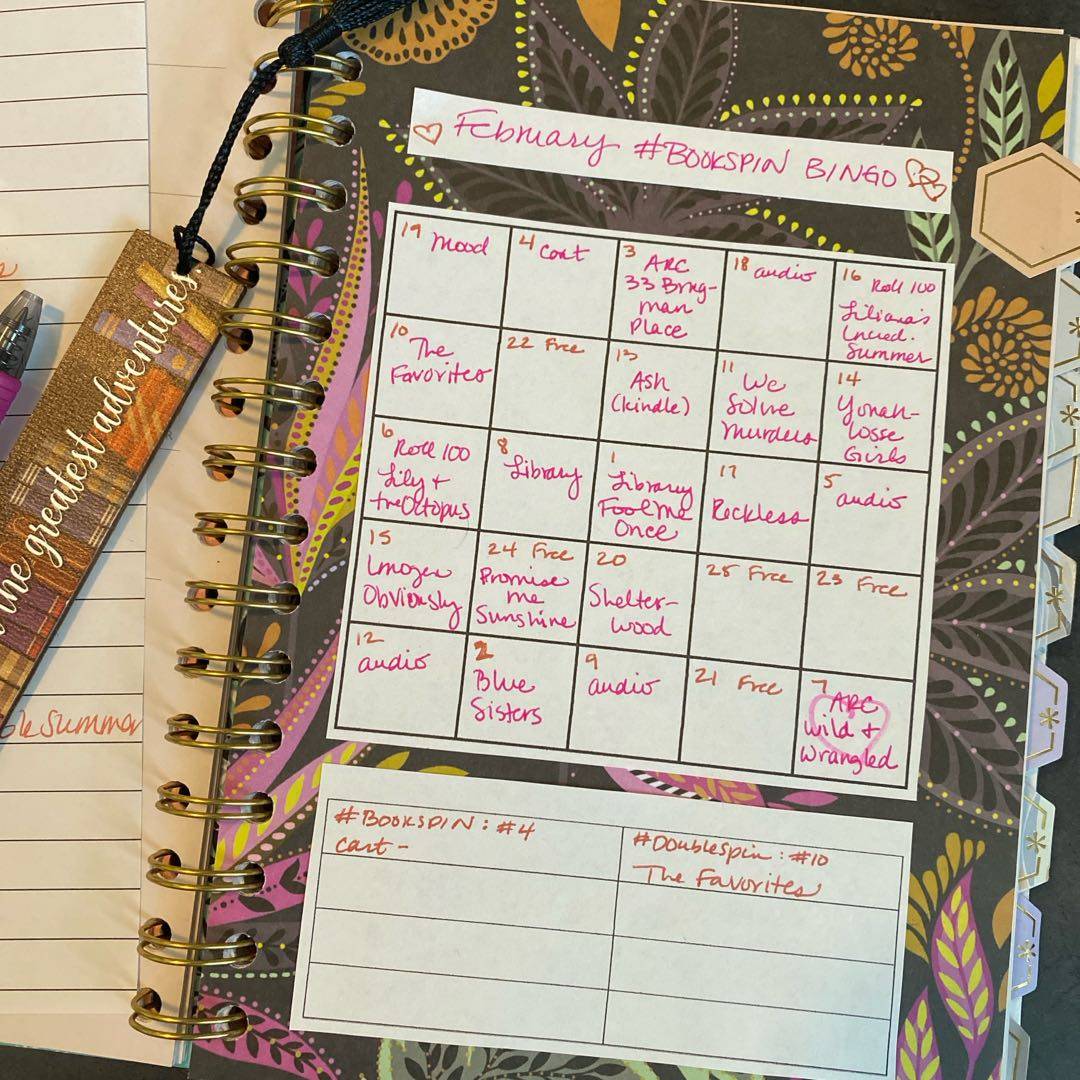 February #BOOKSPIN BINGO
19 Mood
4 Cart
3 ARC
33 Brng-
man
Place
18 audio
16 Roll 100
Liliana's
Incred.
Summer
10 The
Favorites
22 Free
13
Ash
(kindle)
11 We
Solve
Murders
14
Yonah-
losse
Girls
6 Roll 100
Lily +
the Octopus
8 Library
1 Library
Fool Me
Once
17
Reckless
5 audio
15
Imogen
Obviously
24 Free
Promise
me
Sunshine
20
Shelter-
wood
25 Free
23 Free
12 audio
2
Blue
Sisters
9 audio
21 Free
7 ARC
Wild +
Wrangled
#BOOKSPIN: #4
cart -
#Doublespin: #10
The Favorites
the greatest adventures
Summer